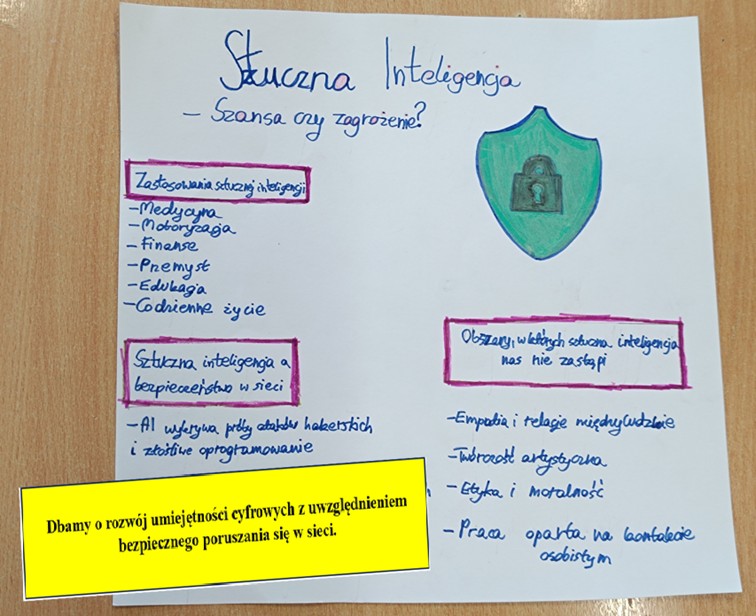 Sztuczna Inteligencja
- Szansa czy zagrożenie?
Zastosowania sztucznej inteligencji
- Medycyna
- Motoryzacja
- Finanse
- Przemysł
- Edukacja
- Codzienne życie
Sztuczna inteligencja a
bezpieczeństwo w sieci
- AI wykrywa próby ataków hakerskich
i złośliwe oprogramowanie
Obszary, w których sztuczna inteligencja
nas nie zastąpi
- Empatia i relacje międzyludzkie
- Twórczość artystyczna
- Etyka i moralność
- Praca oparta na kontakcie
osobistym
Dbamy o rozwój umiejętności cyfrowych z uwzględnieniem
bezpiecznego poruszania się w sieci.